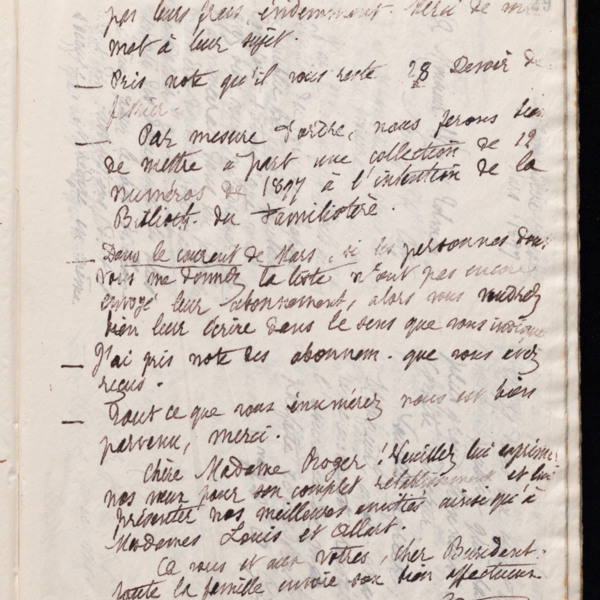 pas leurs frais évidemment. Merci de m
mot à leur sujet.
— Pris note qu'il vous reste 28 Devoir de
février.
— Par mesure d'ordre, nous ferons bien
de mettre à part une collection de 12
numéros de 1897 à l'intention de la
Biblioth. du Familistère.
— Dans le courant de Mars, si les personnes dont
vous me donnez la liste n'ont pas encore
envoyé leur abonnement, alors vous voudrez
bien leur écrire dans le sens que vous indiquez
— J'ai pris note des abonnem. que vous avez
reçus.
— Tout ce que vous énumérez nous est bien
parvenu, merci.
Chère Madame Roger ! Veuillez lui exprimer
nos vœux pour son complet rétablissement et lui
présenter nos meilleures amitiés ainsi qu'à
Mesdames Louis et Allart.
A vous et aux vôtres, cher Buridant,
toute la famille envoie son bien affectueux